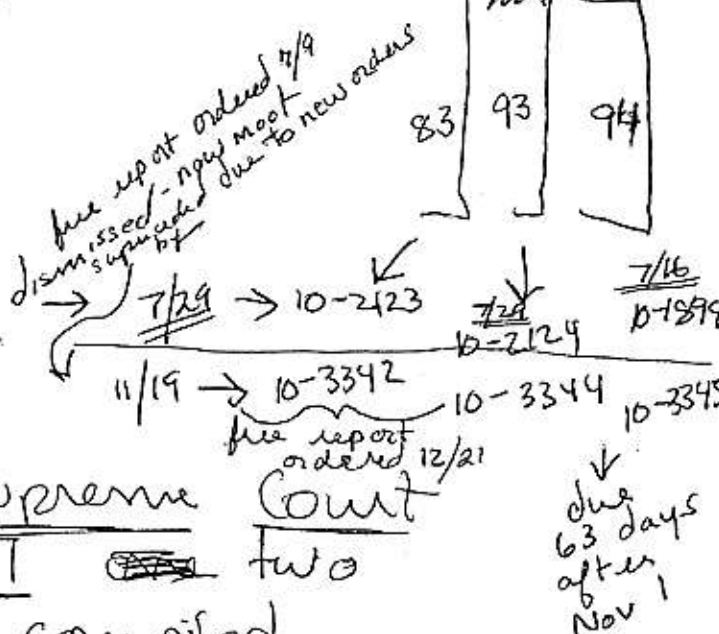 free report ordered 7/9
dismissed - now moot
superseded due to new orders
by
83 93 94
7/29 → 10-2123
7/29
10-2124
7/16
10-1898
11/19 → 10-3342
10-3344
10-3345
free report
ordered 12/21
upreme Court
I two
due
63 days
after
Nov 1